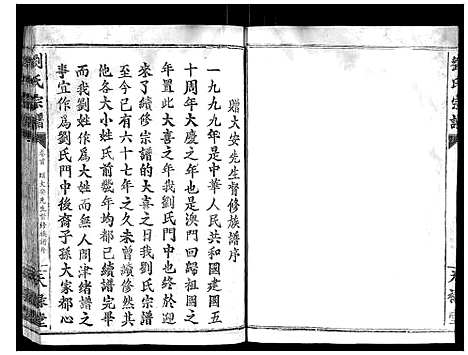 劉氏宗譜
天祿堂
贈大安先生督修族譜序
一九九九年是中華人民共和國建國五
十周年大慶之年也是澳門回歸祖國之
年置此大喜之年我劉氏門中也終於迎
來了續修宗譜的大喜之日我劉氏宗譜
至今已有六十七年之久未曾續修然今
各大小姓氏前幾年均已續譜完畢
而我劉姓作為大姓而無人問津緒譜之
事宜作為劉氏門中後裔子孫大家都心
劉氏宗譜
卷首
天祿堂